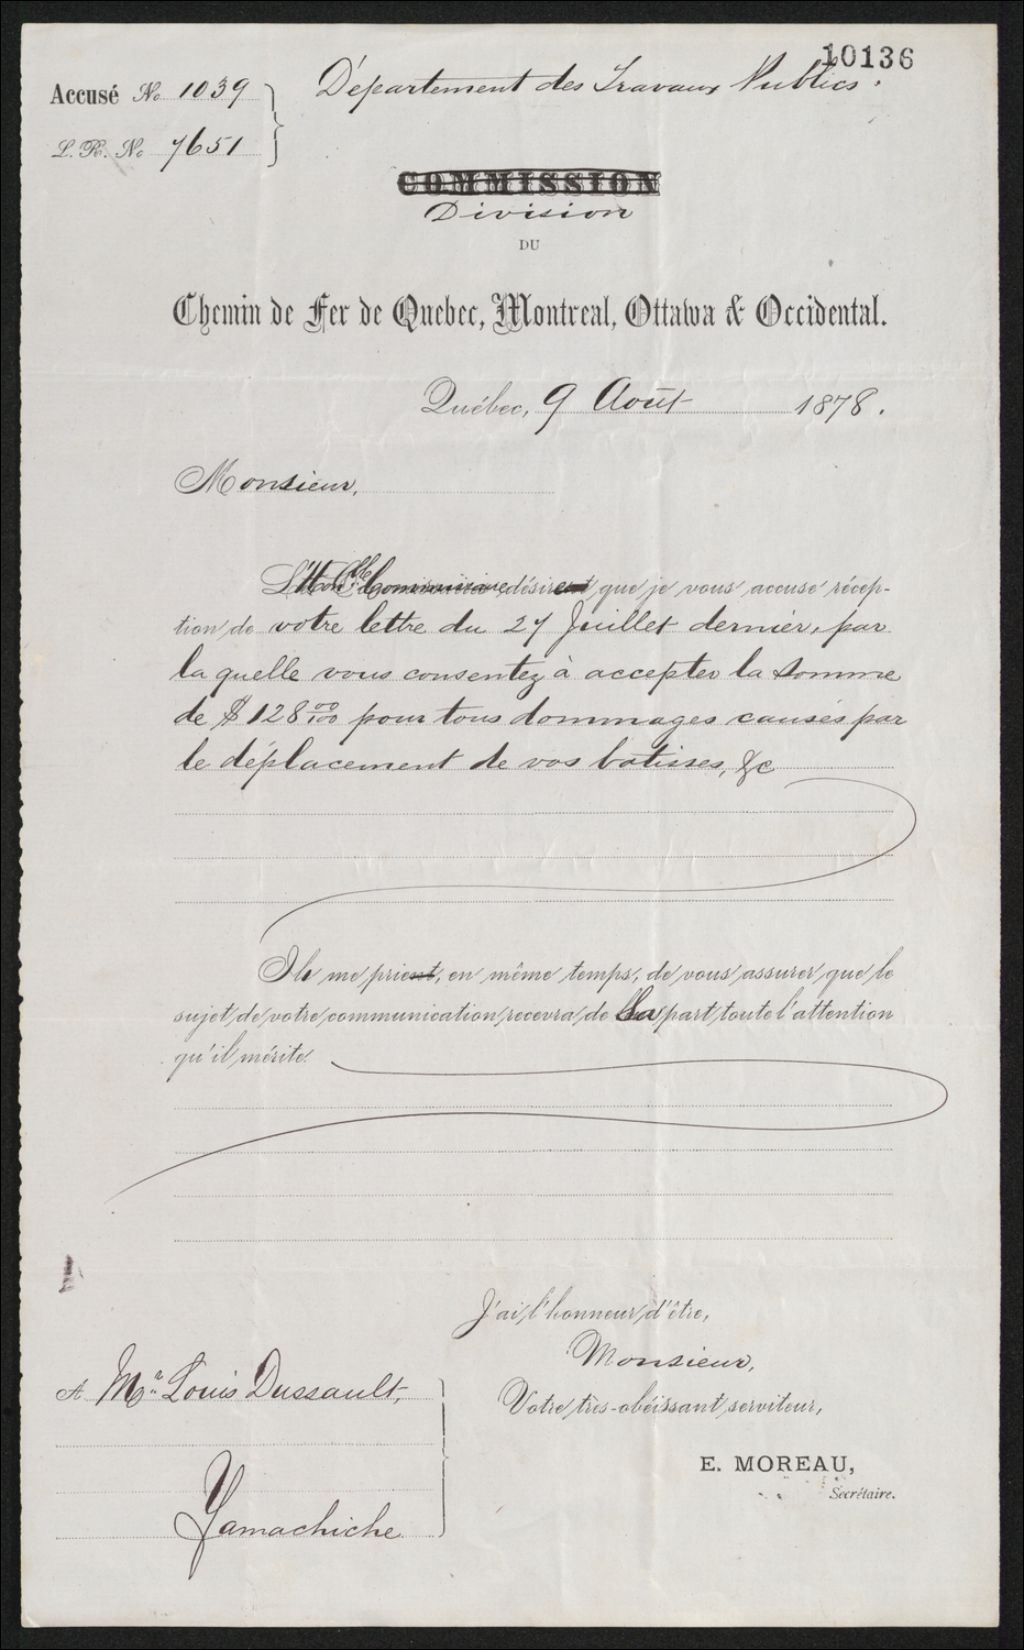 10136
Accusé No 1039
Département des Travaux Publics.
L. R. No 7651
COMMISSION
Division
DU
Chemin de Fer de Quebec, Montreal, Ottawa & Occidental.
Québec, 9 Août 1878.
Monsieur,
L'Hon. Commissaire désirent que je vous accuse récep-
tion de votre lettre du 27 Juillet dernier, par
la quelle vous consentez à accepter la somme
de $128 00/100 pour tous dommages causés par
le déplacement de vos batisses, &c
Ils me prient, en même temps, de vous assurer que le
sujet de votre communication recevra de Sa part toute l'attention
qu'il mérite.
J'ai l'honneur d'être,
Monsieur,
Votre très-obéissant serviteur,
E. MOREAU,
Secrétaire.
A Mr. Louis Dussault,
Yamachiche